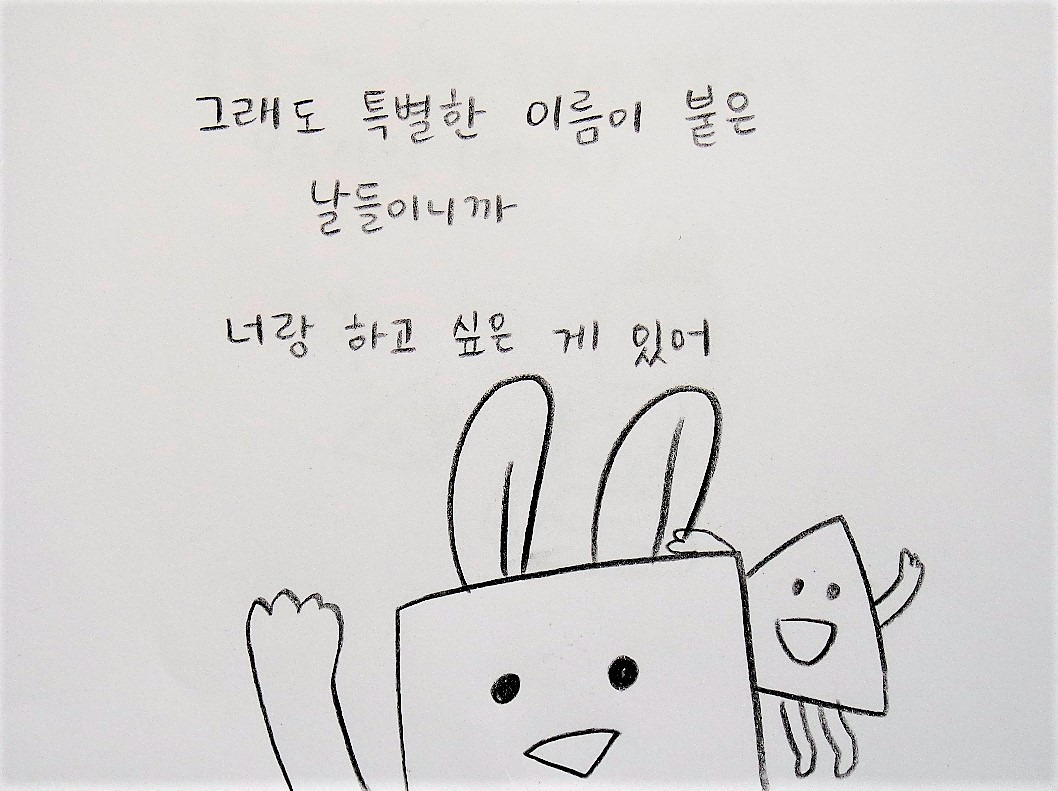 그래도 특별한 이름이 붙은
날들이니까
너랑 하고 싶은 게 있어